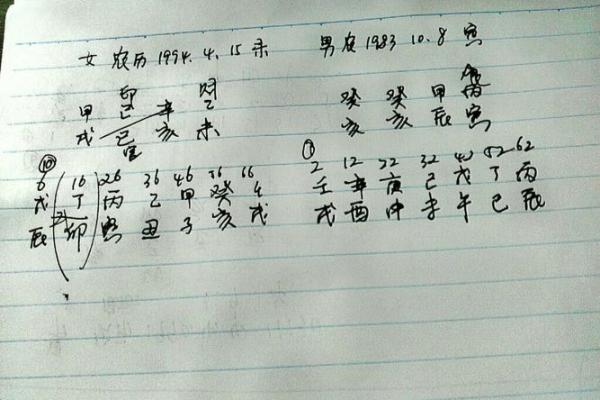 女 农历 1994. 4. 15 未 男 农 1983 10. 8 寅
印 财
甲 己 辛 乙 癸 癸 甲 丙
戌 巳 亥 未 亥 亥 辰 寅
宫
⑩ ①
6 16 26 36 46 56 66 2 12 22 32 42 52 62
戊 丁 丙 乙 甲 癸 壬 辛 庚 己 戊 丁 丙
辰 卯 寅 丑 子 亥 戌 戌 酉 申 未 午 巳 辰